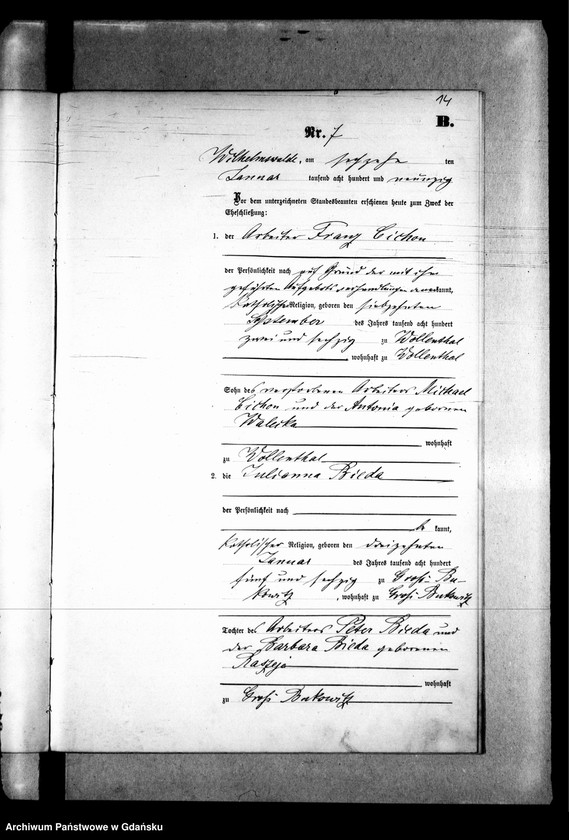 14
B.
Nr. 7
Wilhelmswalde, am sechzehn ten
Januar tausend acht hundert und neunzig
Vor dem unterzeichneten Standesbeamten erschienen heute zum Zweck der
Eheschließung:
1. der Arbeiter Franz Cichon
der Persönlichkeit nach auf Grund der mit ihm
geführten Aufgebots verhandlungen anerkannt,
katholischer Religion, geboren den siebzehnten
September des Jahres tausend acht hundert
zwei und sechzig zu Wollenthal
, wohnhaft zu Wollenthal
Sohn des verstorbenen Arbeiters Michael
Cichon und der Antonia geborenen
Walecka
wohnhaft
zu Wollenthal
2. die Julianna Bieda
der Persönlichkeit nach
be kannt,
katholischer Religion, geboren den dreizehnten
Januar des Jahres tausend acht hundert
fünf und sechzig zu Groß Bu-
kowitz, wohnhaft zu Groß Bukowitz
Tochter des Arbeiters Peter Bieda und
der Barbara Bieda geborenen
wohnhaft
zu Groß Bukowitz
Archiwum Państwowe w Gdańsku